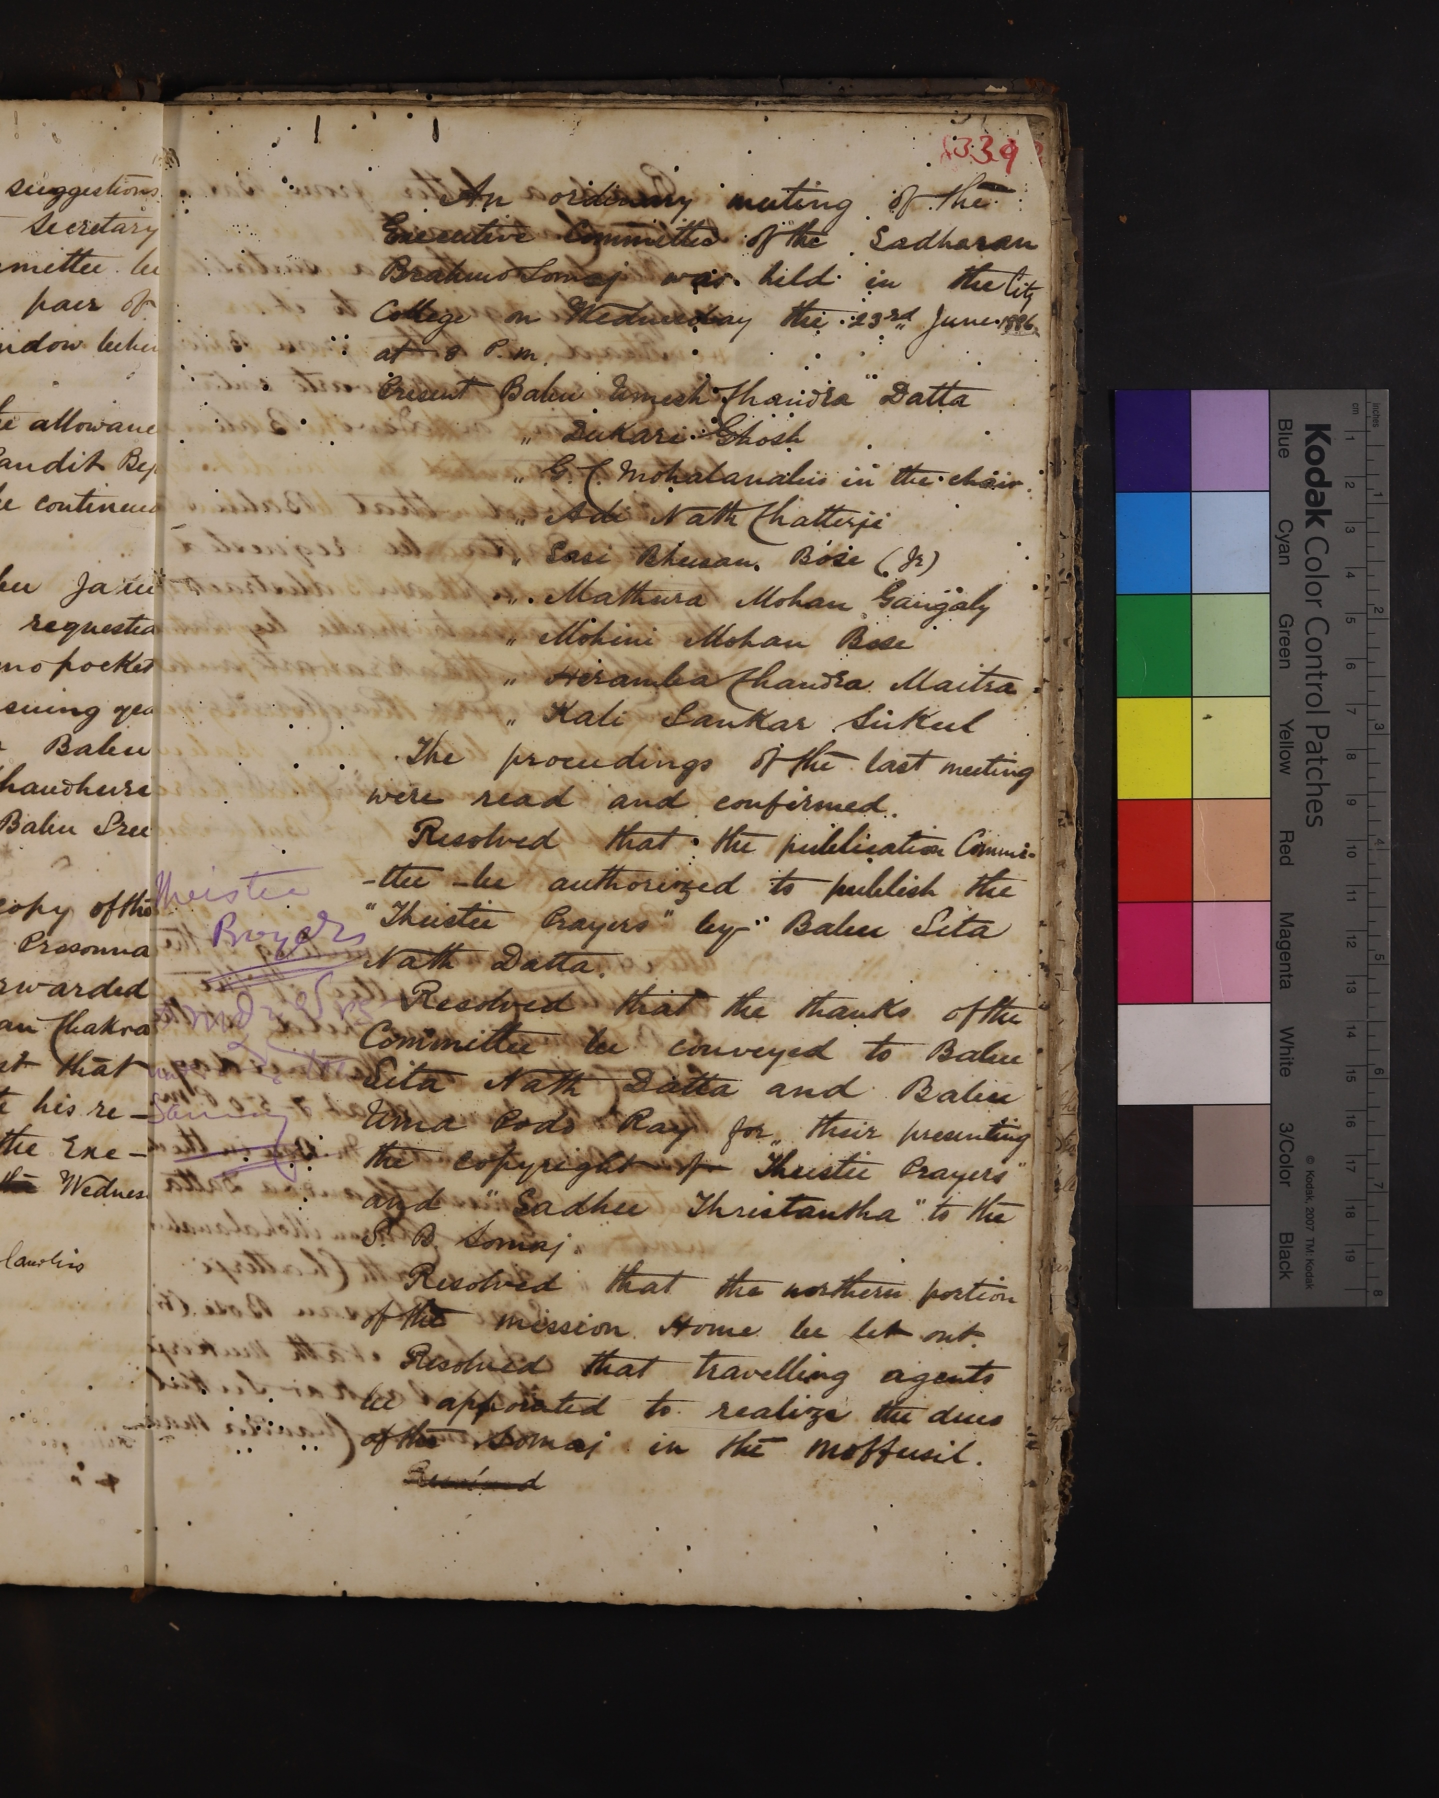 suggestions
Secretary
mmittee be
pair of
allowance
Pandit
be continued
requested
pocket
Babu
Chaudhuri
Babu Sree
copy of the
Prosonna
forwarded
Chakra
that
his re-
the Exe-
the Wednes
339
An ordinary meeting of the
Executive Committee of the Sadharan
Brahmo Somaj was held in the City
College on Wednesday the 23rd June 1886
at 8 P.m.
Present Babu Umesh Chandra Datta
" Dukari Ghosh
" G. C. Mohalanabis in the chair.
" Adi Nath Chatterji
" Sasi Bhusan Bose (Jr)
" Mathura Mohan Gangaly
" Mohini Mohan Bose
" Heramba Chandra Maitra
" Kali Sankar Sukul
The proceedings of the last meeting
were read and confirmed.
Resolved that the publication Commi-
-ttee be authorized to publish the
"Theistic Prayers" by Babu Sita
Nath Datta.
Resolved that the thanks of the
Committee be conveyed to Babu
Sita Nath Datta and Babu
Uma Pods Ray for their presenting
the copyright of "Theistic Prayers"
and "Sadhu Thristantha" to the
S. B. Somaj.
Resolved that the northern portion
of the mission Home be let out.
Resolved that travelling agents
be appointed to realize the dues
of the Somaj in the moffusil.
Resolved
Theistic
Prayers
Kodak Color Control Patches
Blue Cyan Green Yellow Red Magenta White 3/Color Black
© Kodak, 2007 TM: Kodak
cm 1 2 3 4 5 6 7 8 9 10 11 12 13 14 15 16 17 18 19
inches 1 2 3 4 5 6 7 8